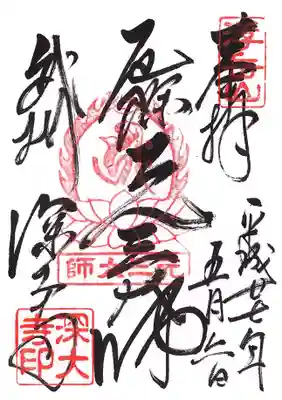 奉拝
平成廿七年
五月六日
厄除元三大師
武州
深大寺
元三大師
深大寺印